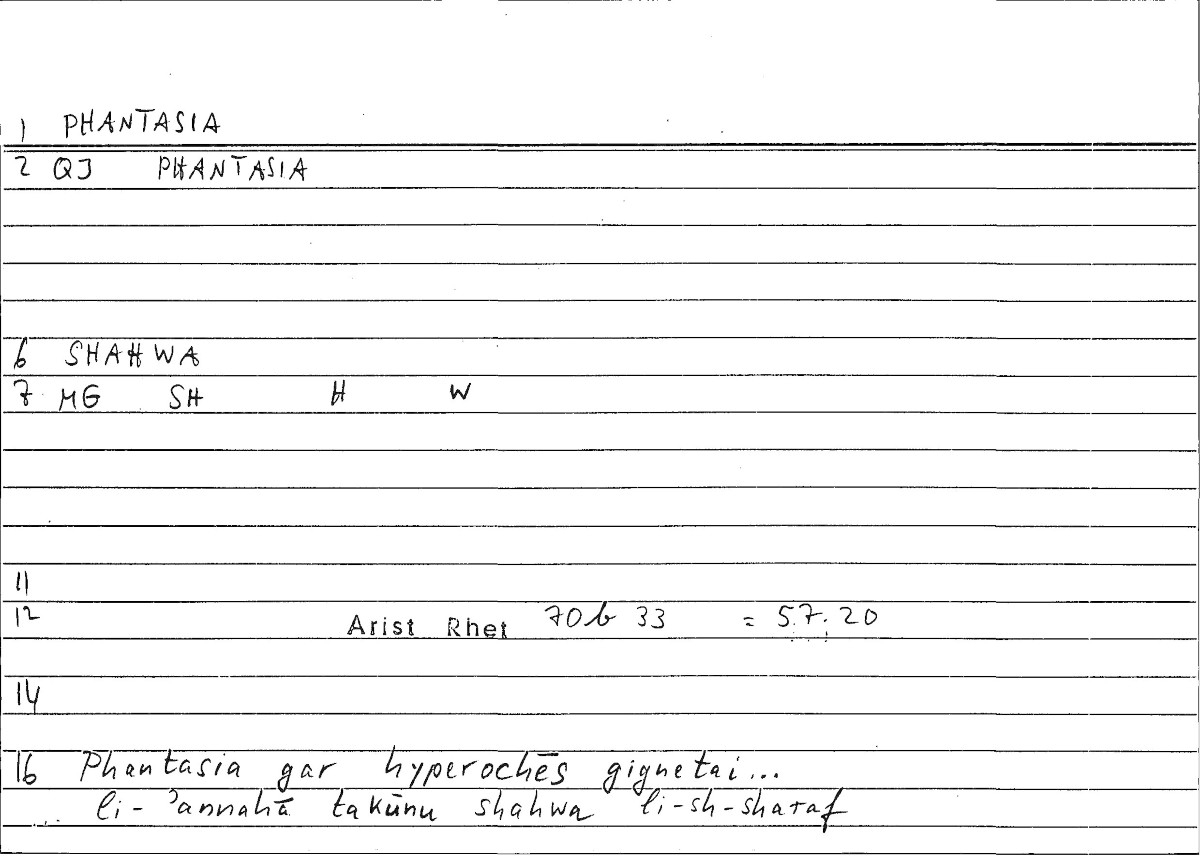 1 PHANTASIA
2 QJ PHANTASIA
6 SHAHWA
7 MG SH H W
11
12 Arist Rhet 70b 33 = 57.20
14
16 Phantasia gar hyperochēs gignetai...
li-ʾannahā takūnu shahwa li-sh-sharaf